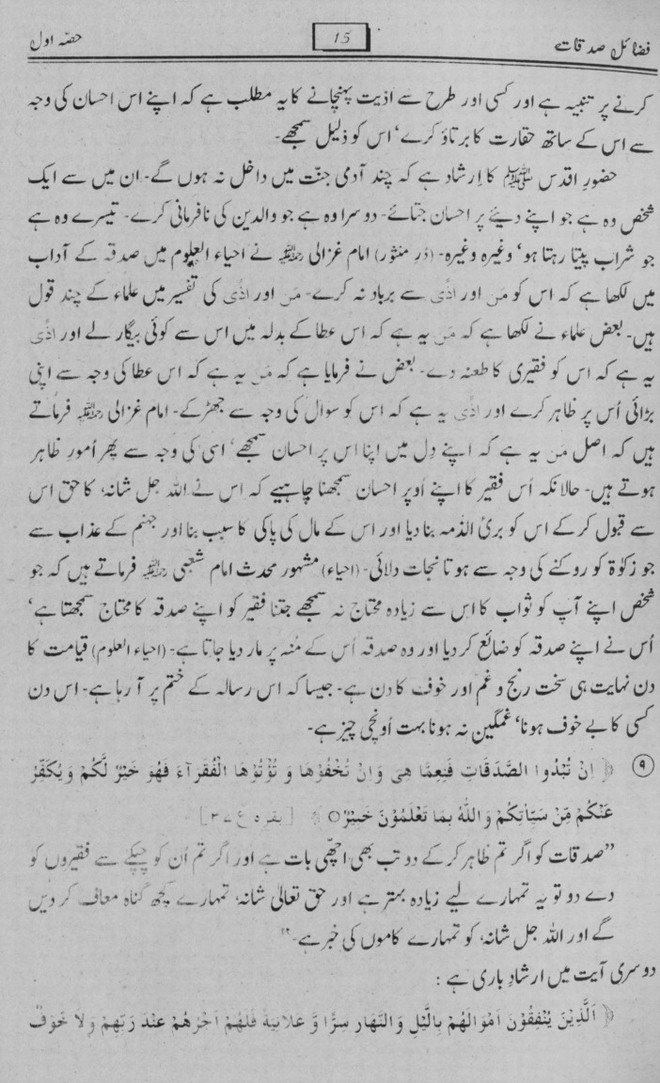 فضائل صدقات 15 حصّہ اول
کرنے پر تنبیہ ہے اور کسی اور طرح سے اذیت پہنچانے کا یہ مطلب ہے کہ اپنے اس احسان کی وجہ
سے اس کے ساتھ حقارت کا برتاؤ کرے‘ اس کو ذلیل سمجھے۔
حضورِ اقدس ﷺ کا اِرشاد ہے کہ چند آدمی جنّت میں داخل نہ ہوں گے۔ ان میں سے ایک
شخص وہ ہے جو اپنے دیئے پر احسان جتائے۔ دوسرا وہ ہے جو والدین کی نافرمانی کرے۔ تیسرے وہ ہے
جو شراب پیتا رہتا ہو‘ وغیرہ وغیرہ۔ (دُرِ منثور) امام غزالی رحمۃ اللہ علیہ نے احیاء العلوم میں صدقہ کے آداب
میں لکھا ہے کہ اس کو مَن اور اذًی سے برباد نہ کرے۔ مَن اور اذًی کی تفسیر میں علماء کے چند قول
ہیں۔ بعض علماء نے لکھا ہے کہ مَن یہ ہے کہ اس عطا کے بدلہ میں اس سے کوئی بیگار لے اور اذًی
یہ ہے کہ اس کو فقیری کا طعنہ دے۔ بعض نے فرمایا ہے کہ مَن یہ ہے کہ اس عطا کی وجہ سے اپنی
بڑائی اُس پر ظاہر کرے اور اذًی یہ ہے کہ اس کو سوال کی وجہ سے جھڑکے۔ امام غزالی رحمۃ اللہ علیہ فرماتے
ہیں کہ اصل مَن یہ ہے کہ اپنے دِل میں اپنا اس پر احسان سمجھے‘ اسی کی وجہ سے پھر اُمور ظاہر
ہوتے ہیں۔ حالانکہ اُس فقیر کا اپنے اُوپر احسان سمجھنا چاہیے کہ اس نے اللہ جل شانہٗ کا حق اس
سے قبول کر کے اس کو بریُٔ الذّمہ بنا دیا اور اس کے مال کی پاکی کا سبب بنا اور جہنم کے عذاب سے
جو زکوٰۃ کو روکنے کی وجہ سے ہوتا نجات دلائی۔ (احیاء) مشہور محدث امام شعبی رحمۃ اللہ علیہ فرماتے ہیں کہ جو
شخص اپنے آپ کو ثواب کا اس سے زیادہ محتاج نہ سمجھے جتنا فقیر کو اپنے صدقہ کا محتاج سمجھتا ہے‘
اُس نے اپنے صدقہ کو ضائع کر دیا اور وہ صدقہ اُس کے مُنہ پر مار دیا جاتا ہے۔ (احیاء العلوم) قیامت کا
دن نہایت ہی سخت رنج و غم اور خوف کا دن ہے۔ جیسا کہ اس رسالہ کے ختم پر آ رہا ہے۔ اس دن
کسی کا بے خوف ہونا‘ غمگین نہ ہونا بہت اُونچی چیز ہے۔
(۹) ﴿ اِنْ تُبْدُوا الصَّدَقَاتِ فَنِعِمَّا هِیَ وَاِنْ تُخْفُوْهَا وَ تُؤْتُوْهَا الْفُقَرَآءَ فَهُوَ خَیْرٌ لَّکُمْ وَ یُکَفِّرُ
عَنْکُمْ مِّنْ سَیِّاٰتِکُمْ وَاللّٰهُ بِمَا تَعْلَمُوْنَ خَبِیْرٌ○ ﴾ [بقرہ ع ۳۷]
”صدقات کو اگر تم ظاہر کر کے دو تب بھی اچھّی بات ہے اور اگر تم اُن کو چپکے سے فقیروں کو
دے دو تو یہ تمہارے لیے زیادہ بہتر ہے اور حق تعالیٰ شانہٗ تمہارے کچھ گناہ معاف کر دیں
گے اور اللہ جل شانہٗ کو تمہارے کاموں کی خبر ہے۔“
دوسری آیت میں ارشادِ باری ہے :
﴿ اَلَّذِیْنَ یُنْفِقُوْنَ اَمْوَالَهُمْ بِالَّیْلِ وَالنَّهَارِ سِرًّا وَّ عَلَانِیَةً فَلَهُمْ اَجْرُهُمْ عِنْدَ رَبِّهِمْ وَلَا خَوْفٌ